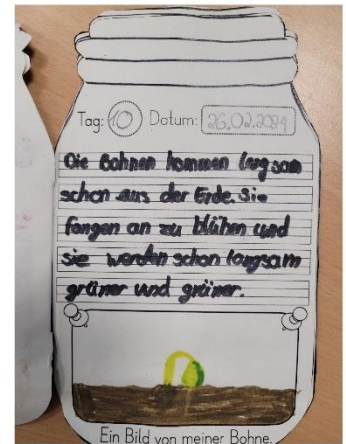 Tag: 10 Datum: 26.02.2024
Die Bohnen kommen langsam
schon aus der Erde. Sie
fangen an zu blühen und
sie werden schon langsam
grüner und grüner.
Ein Bild von meiner Bohne.